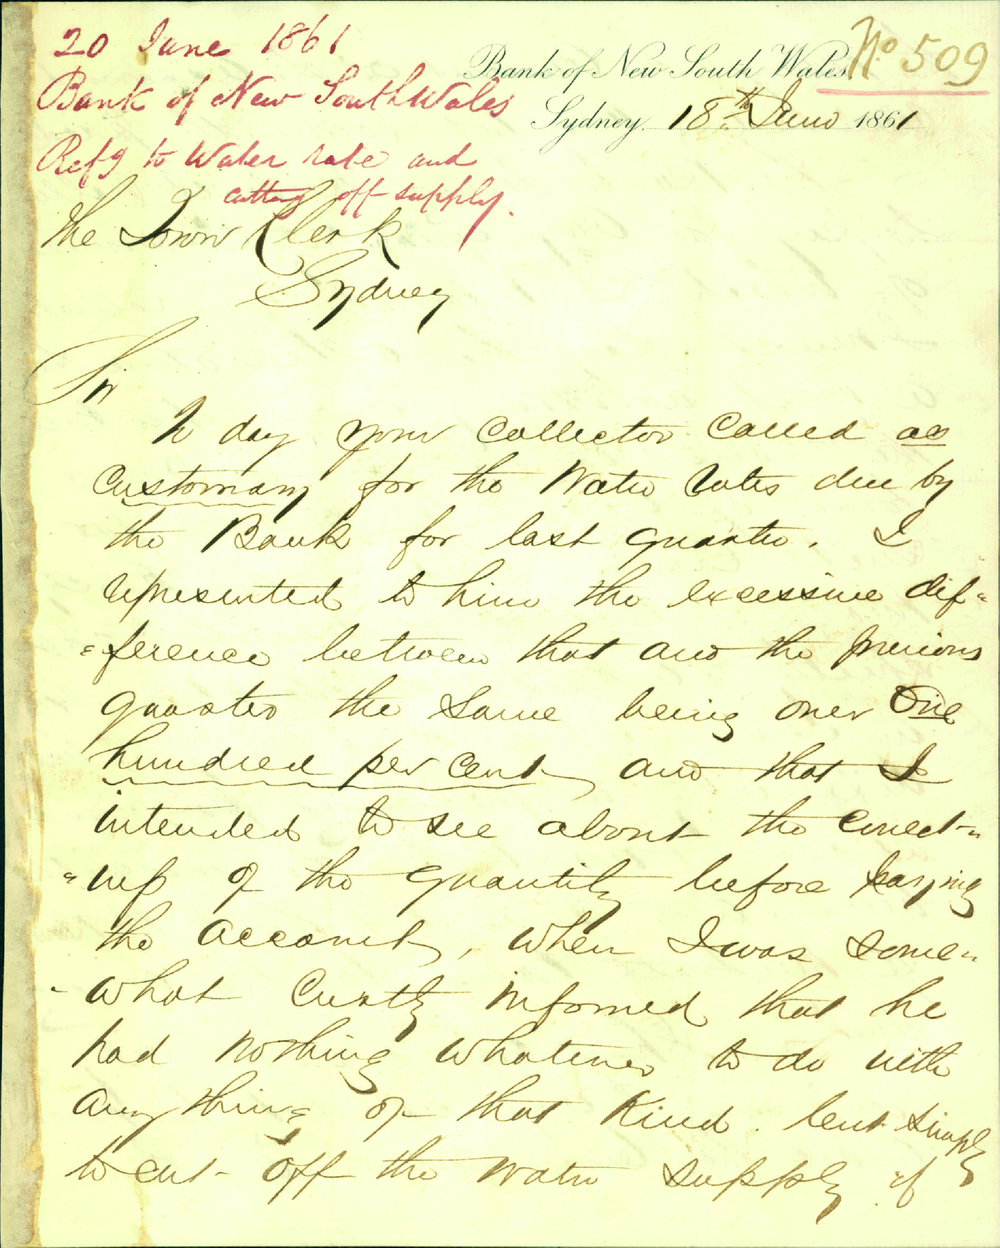 20 June 1861
Bank of New South Wales
Refg to Water rate and
cutting off supply.
No 509
Bank of New South Wales
Sydney 18th June 1861
The Town Clerk
Sydney
Sir
To day your Collector called as
customary for the Water Rates due by
the Bank for last quarter. I
represented to him the excessive dif-
ference between that and the previous
quarter the same being over One
hundred per cent, and that I
intended to see about the correct-
ness of the quantity before paying
the account, when I was some-
what Curtly informed that he
had nothing whatever to do with
any thing of that Kind but simply
to cut off the Water supply if